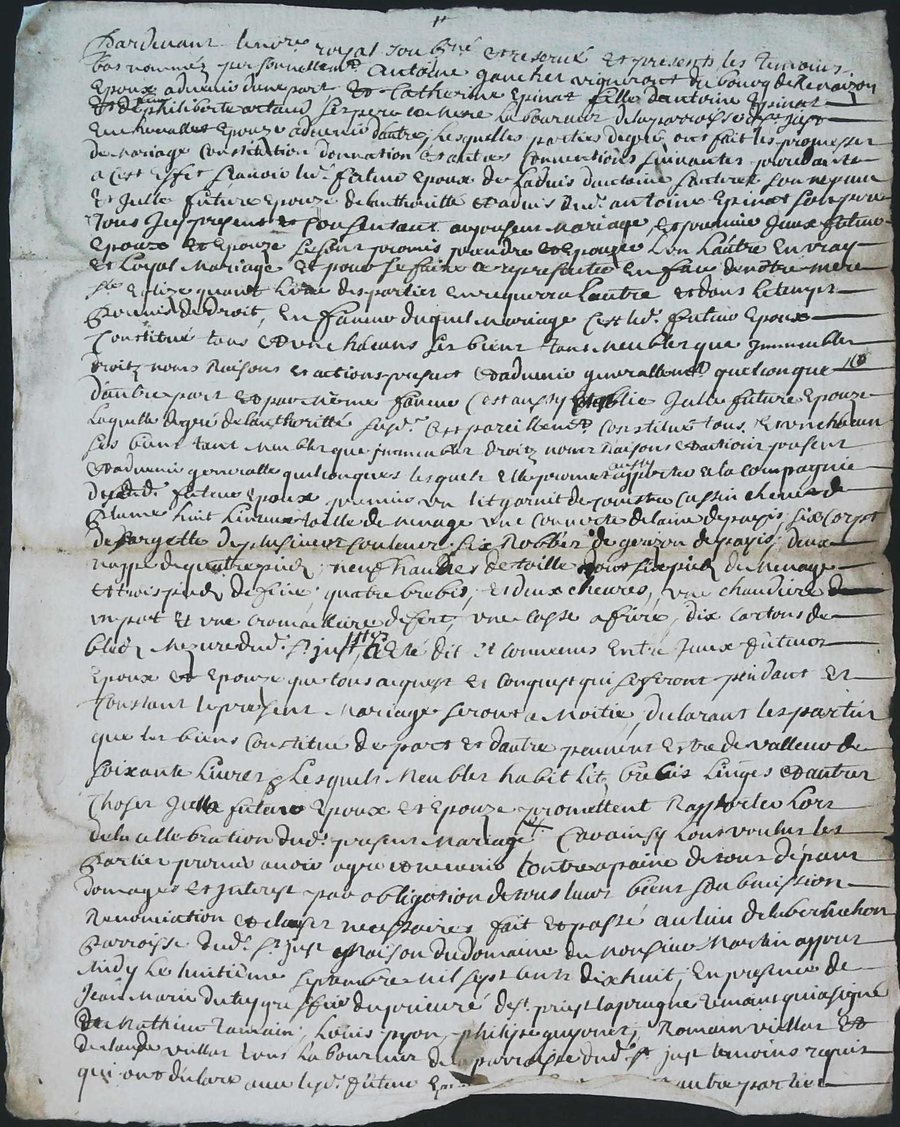 Pardevant le no.re royal soubsné et reservé et presents les temoins
bas nommez personnellem.t Antoine gaucher vigneront du bourg de Renaison
Epoux advenir d'une part Et Catherine Epinat fille d'antoine Epinat
Et de philiberte artaud ses pere et mere Laboureur de la parroisse de St just
En chevallet Epouze advenir d'autre, Lesquelles parties de gré ont fait les promesses
de Mariage Constitution donnation Et autres Conventions suivantes procedants
a c'est effet scavoir led. futur Epoux de l'advis d'antoine
Et Jcelle future Epouze de l'authorité Et advis dud. antoine Epinat son pere
tous Jcy presens et Consentant au present Mariage Et premier Jceux futur
Epoux Et Epouze se sont promis prendre et Epouzer L'un L'autre En vray
Et Loyal Mariage Et pour se faire se representer En face de nôtre mere
Ste Eglise quand L'une des parties En requerra L'autre Et dans le temps
de Droit, En faveur duquel Mariage C'est led. futur Epoux
Constitué tous Et uns chacuns ses biens tant Meubles que Jmmeubles
droitz noms Raisons et actions present Et advenir generallem.t quelconque
D'autre part et par Même faveur C'est aussy Establie Jcelle future Epouze
Laquelle de gré de L'authorité susd. c'est pareillem.t Constitué tous Et uns chacun
ses biens tant Meubles que Jmmeubles droitz noms Raisons Et actions present
Et advenir generalle quelconques lesquels Elle promet apporter a la Compagnie
dud. futur Epoux premier un lit garnit de Coustre Cussin chevet de
plume huit Linceux toille de menage une Couverte de laine de pays, six Corps
de sargette de plusieurs Couleurs six Robbes de de pays, deux
nappe de quatre pied, neuf de toille
Et trois pied de quatre brebis, Et deux chevres, une chaudiere
un pot Et une Cromailliere de fert, une Casse a frire, dix Cartons de
bled Mezure dud. St just, a Eté dit Et Convenus Entre Jceux futurs
Epoux Et Epouze que tous acquest Et Conquest qui se feront pendant Et
Constant le present Mariage seront a Moitié, declarant les parties
que les biens Constitué de part Et d'autre peuvent Estre de valleur de
soixante Livres Lesquels Meubles habit lit, brebis Linges Et autres
choses Jceux futurs Epoux et Epouze promettent Rapporter Lors
de la Cellebration dud. present Mariage, Car ainsy L'ont voulus les
Parties promis avoir agreable a paine de tous dépans
domages Et Interest par obligation de tous leurs biens soubmission
Renonciation et clauses necessaires fait Et passé au lieu de
Parroisse dud. St just Maison du domaine du Monsieur Martin appres
Midy Le huitième septembre Mil sept cent dix huit, En presence de
Jean Marie du prieuré de St priest Laprugne temoins qui a signé
de Mathieu Louis pyon, philipe guyonet, Romain viallat Et
de claude viallat tous Laboureur de la parroisse dud. St just temoins requis
qui ont declaré avec led. futur autre parties